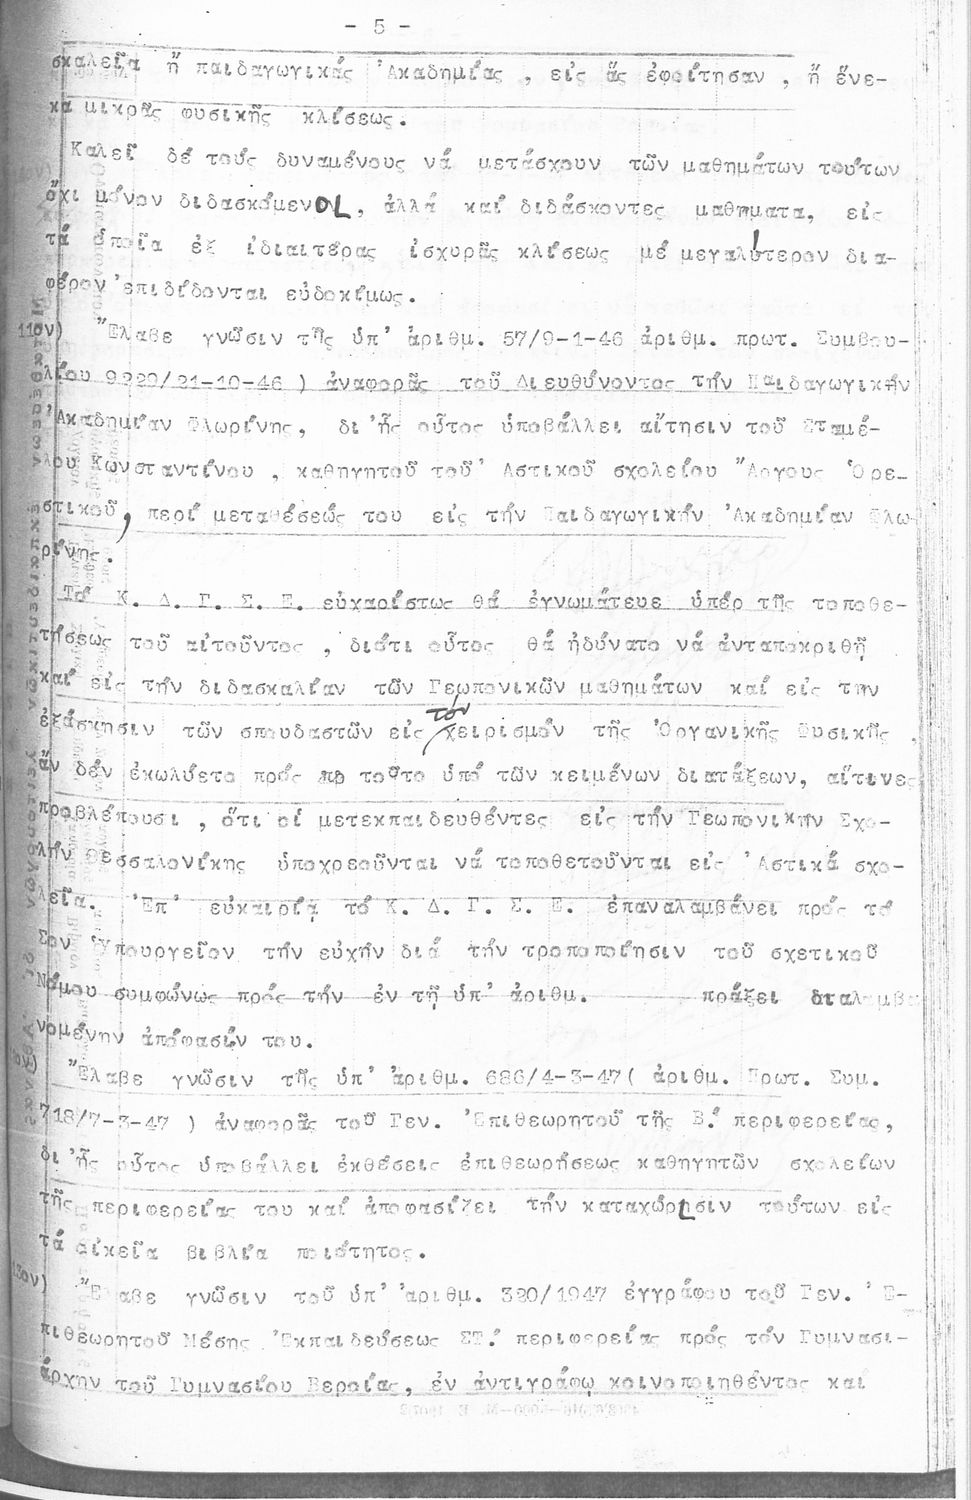 - 5 -
σκαλεῖα ἤ παιδαγωγικάς Ἀκαδημίας , εἰς ἅς ἐφοίτησαν , ἤ ἕνε-
κα μικρᾶς φυσικῆς κλίσεως.
Καλεῖ δέ τούς δυναμένους νά μετάσχουν τῶν μαθημάτων τούτων
ὄχι μόνον διδασκόμενοι, ἀλλά καί διδάσκοντες μαθήματα, εἰς
τά ὁποῖα ἐξ ἰδιαιτέρας ἰσχυρᾶς κλίσεως μέ μεγαλύτερον δια-
φέρον ἐπιδίδονται εὐδοκίμως.
11ον) Ἔλαβε γνῶσιν τῆς ὑπ' ἀριθμ. 57/9-1-46 ἀριθμ. πρωτ. Συμβου-
λίου 9220/21-10-46 ) ἀναφορᾶς τοῦ Διευθύνοντος τήν Παιδαγωγικήν
Ἀκαδημίαν Φλωρίνης, δι' ἧς οὗτος ὑποβάλλει αἴτησιν τοῦ Σταμέ-
λου Κωνσταντίνου , καθηγητοῦ τοῦ Ἀστικοῦ σχολείου Ἄργους Ὀρε-
στικοῦ, περί μεταθέσεώς του εἰς τήν Παιδαγωγικήν Ἀκαδημίαν Φλω-
ρίνης.
Τό Κ. Δ. Γ. Σ. Ε. εὐχαρίστως θά ἐγνωμάτευε ὑπέρ τῆς τοποθε-
τήσεως τοῦ αἰτοῦντος , διότι οὗτος θά ἠδύνατο νά ἀνταποκριθῇ
καί εἰς τήν διδασκαλίαν τῶν Γεωπονικῶν μαθημάτων καί εἰς την
ἐξάσκησιν τῶν σπουδαστῶν εἰς τόν χειρισμόν τῆς Ὀργανικῆς Φυσικῆς ,
ἄν δέν ἐκωλύετο πρός τοῦτο ὑπό τῶν κειμένων διατάξεων, αἵτινες
προβλέπουσι , ὅτι οἱ μετεκπαιδευθέντες εἰς τήν Γεωπονικήν Σχο-
λήν Θεσσαλονίκης ὑποχρεοῦνται νά τοποθετοῦνται εἰς Ἀστικά σχο-
λεῖα. Ἐπ' εὐκαιρίᾳ τό Κ. Δ. Γ. Σ. Ε. ἐπαναλαμβάνει πρός τό
Σον Ὑπουργεῖον τήν εὐχήν διά τήν τροποποίησιν τοῦ σχετικοῦ
Νόμου συμφώνως πρός τήν ἐν τῇ ὑπ' ἀριθμ. πράξει διαλαμβα
νομένην ἀπόφασίν του.
Ἔλαβε γνῶσιν τῆς ὑπ' ἀριθμ. 686/4-3-47( ἀριθμ. Πρωτ. Συμ.
718/7-3-47 ) ἀναφορᾶς τοῦ Γεν. Ἐπιθεωρητοῦ τῆς Β.' περιφερείας,
δι' ἧς οὗτος ὑποβάλλει ἐκθέσεις ἐπιθεωρήσεως καθηγητῶν σχολείων
τῆς περιφερείας του καί ἀποφασίζει τήν καταχώρισιν τούτων εἰς
τά οἰκεῖα βιβλία ποιότητος.
13ον) Ἔλαβε γνῶσιν τοῦ ὑπ' ἀριθμ. 320/1947 ἐγγράφου τοῦ Γεν. Ἐ-
πιθεωρητοῦ Μέσης Ἐκπαιδεύσεως ΣΤ.' περιφερείας πρός τόν Γυμνασι-
άρχην τοῦ Γυμνασίου Βεροίας, ἐν ἀντιγράφῳ κοινοποιηθέντος καί